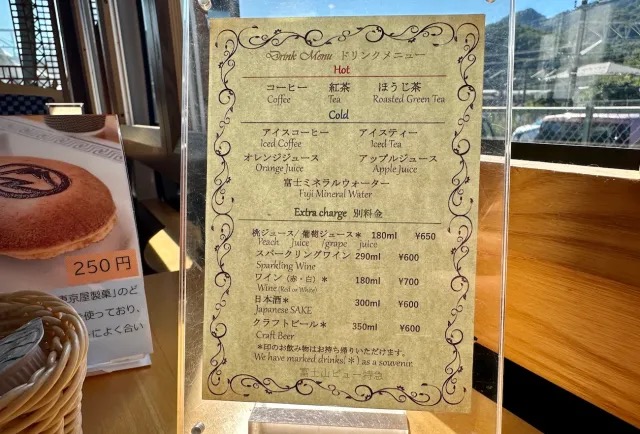 Drink Menu ドリンクメニュー
Hot
コーヒー 紅茶 ほうじ茶
Coffee Tea Roasted Green Tea
Cold
アイスコーヒー アイスティー
Iced Coffee Iced Tea
オレンジジュース アップルジュース
Orange Juice Apple Juice
富士ミネラルウォーター
Fuji Mineral Water
Extra charge 別料金
桃ジュース/葡萄ジュース＊ 180ml ¥650
Peach Juice /grape juice
スパークリングワイン 290ml ¥600
Sparkling Wine
ワイン（赤・白）＊ 180ml ¥700
Wine (Red or White)
日本酒＊ 300ml ¥600
Japanese SAKE
クラフトビール＊ 350ml ¥600
Craft Beer
＊印のお飲み物はお持ち帰りいただけます。
We have marked drinks(＊) as a souvenir.
富士山ビュー特急
250円
東京屋製菓」のど
使っており、
によく合い